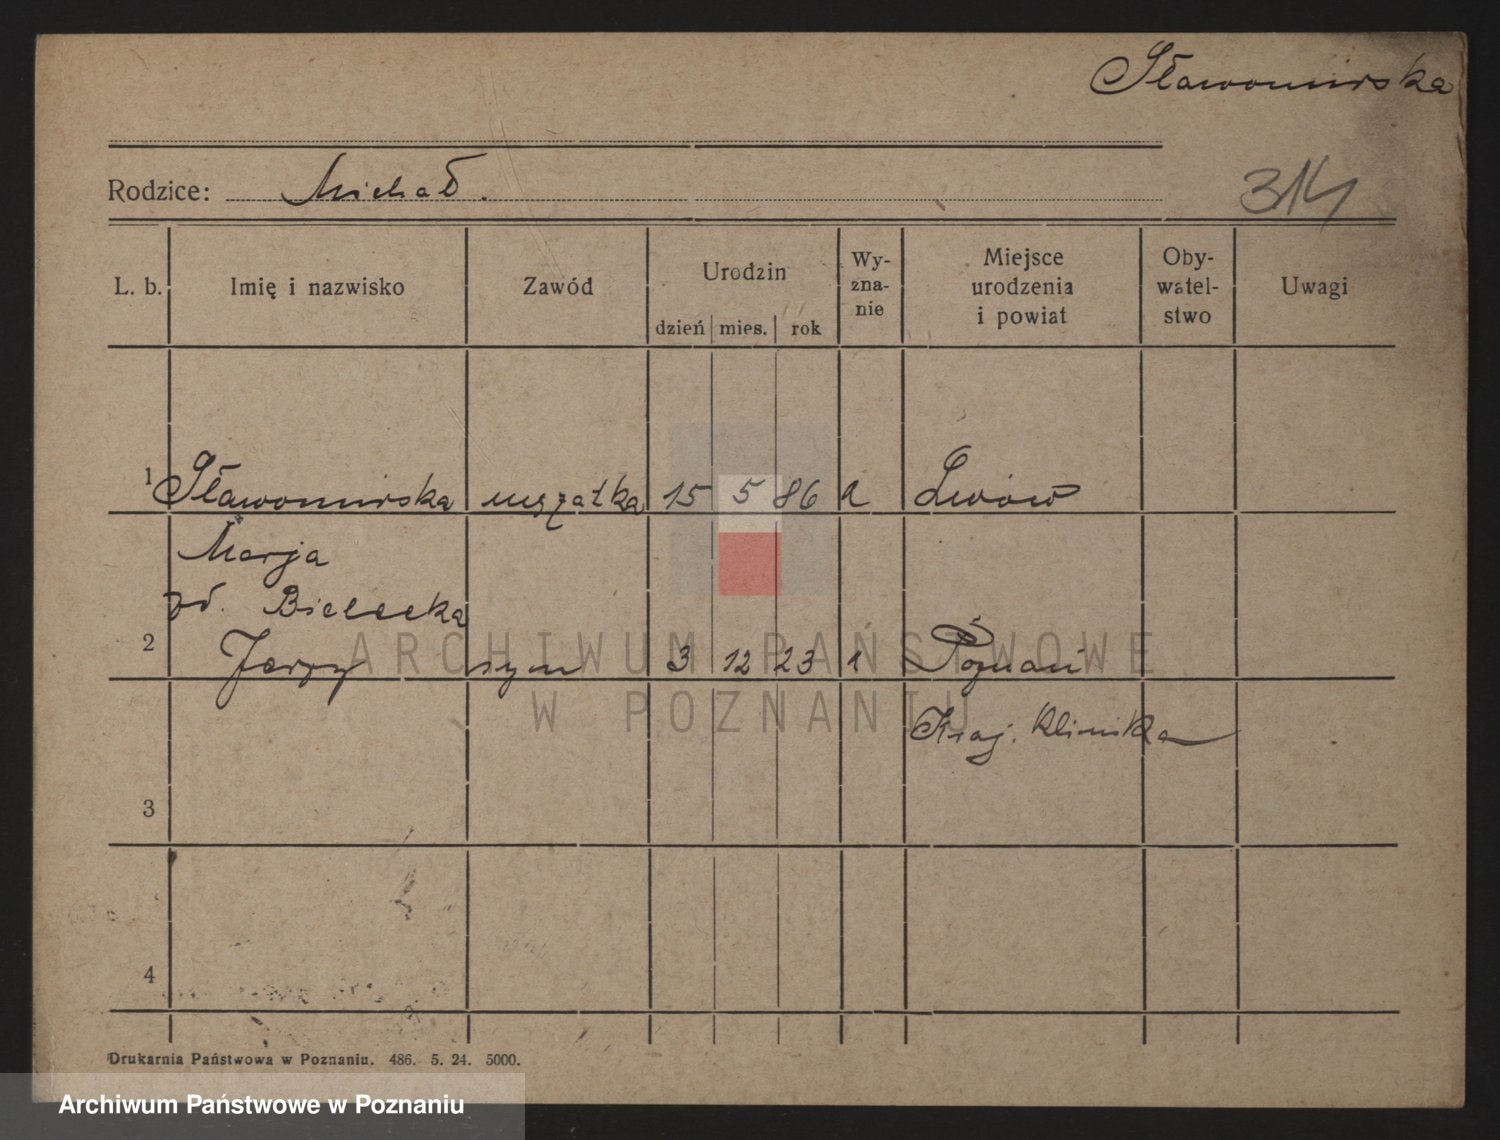 Sławomirska
Rodzice: Michał.
314
L. b. Imię i nazwisko Zawód Urodzin dzień mies. rok Wy-zna-nie Miejsce urodzenia i powiat Oby-watel-stwo Uwagi
1 Sławomirska mężatka 15 5 86 Lwów
Marja
zd. Bielecka
2 Jerzy syn 3 12 23 Poznań
Kraj. Klinika
3
4
ARCHIWUM PAŃSTWOWE
W POZNANIU
Drukarnia Państwowa w Poznaniu. 486. 5. 24. 5000.
Archiwum Państwowe w Poznaniu